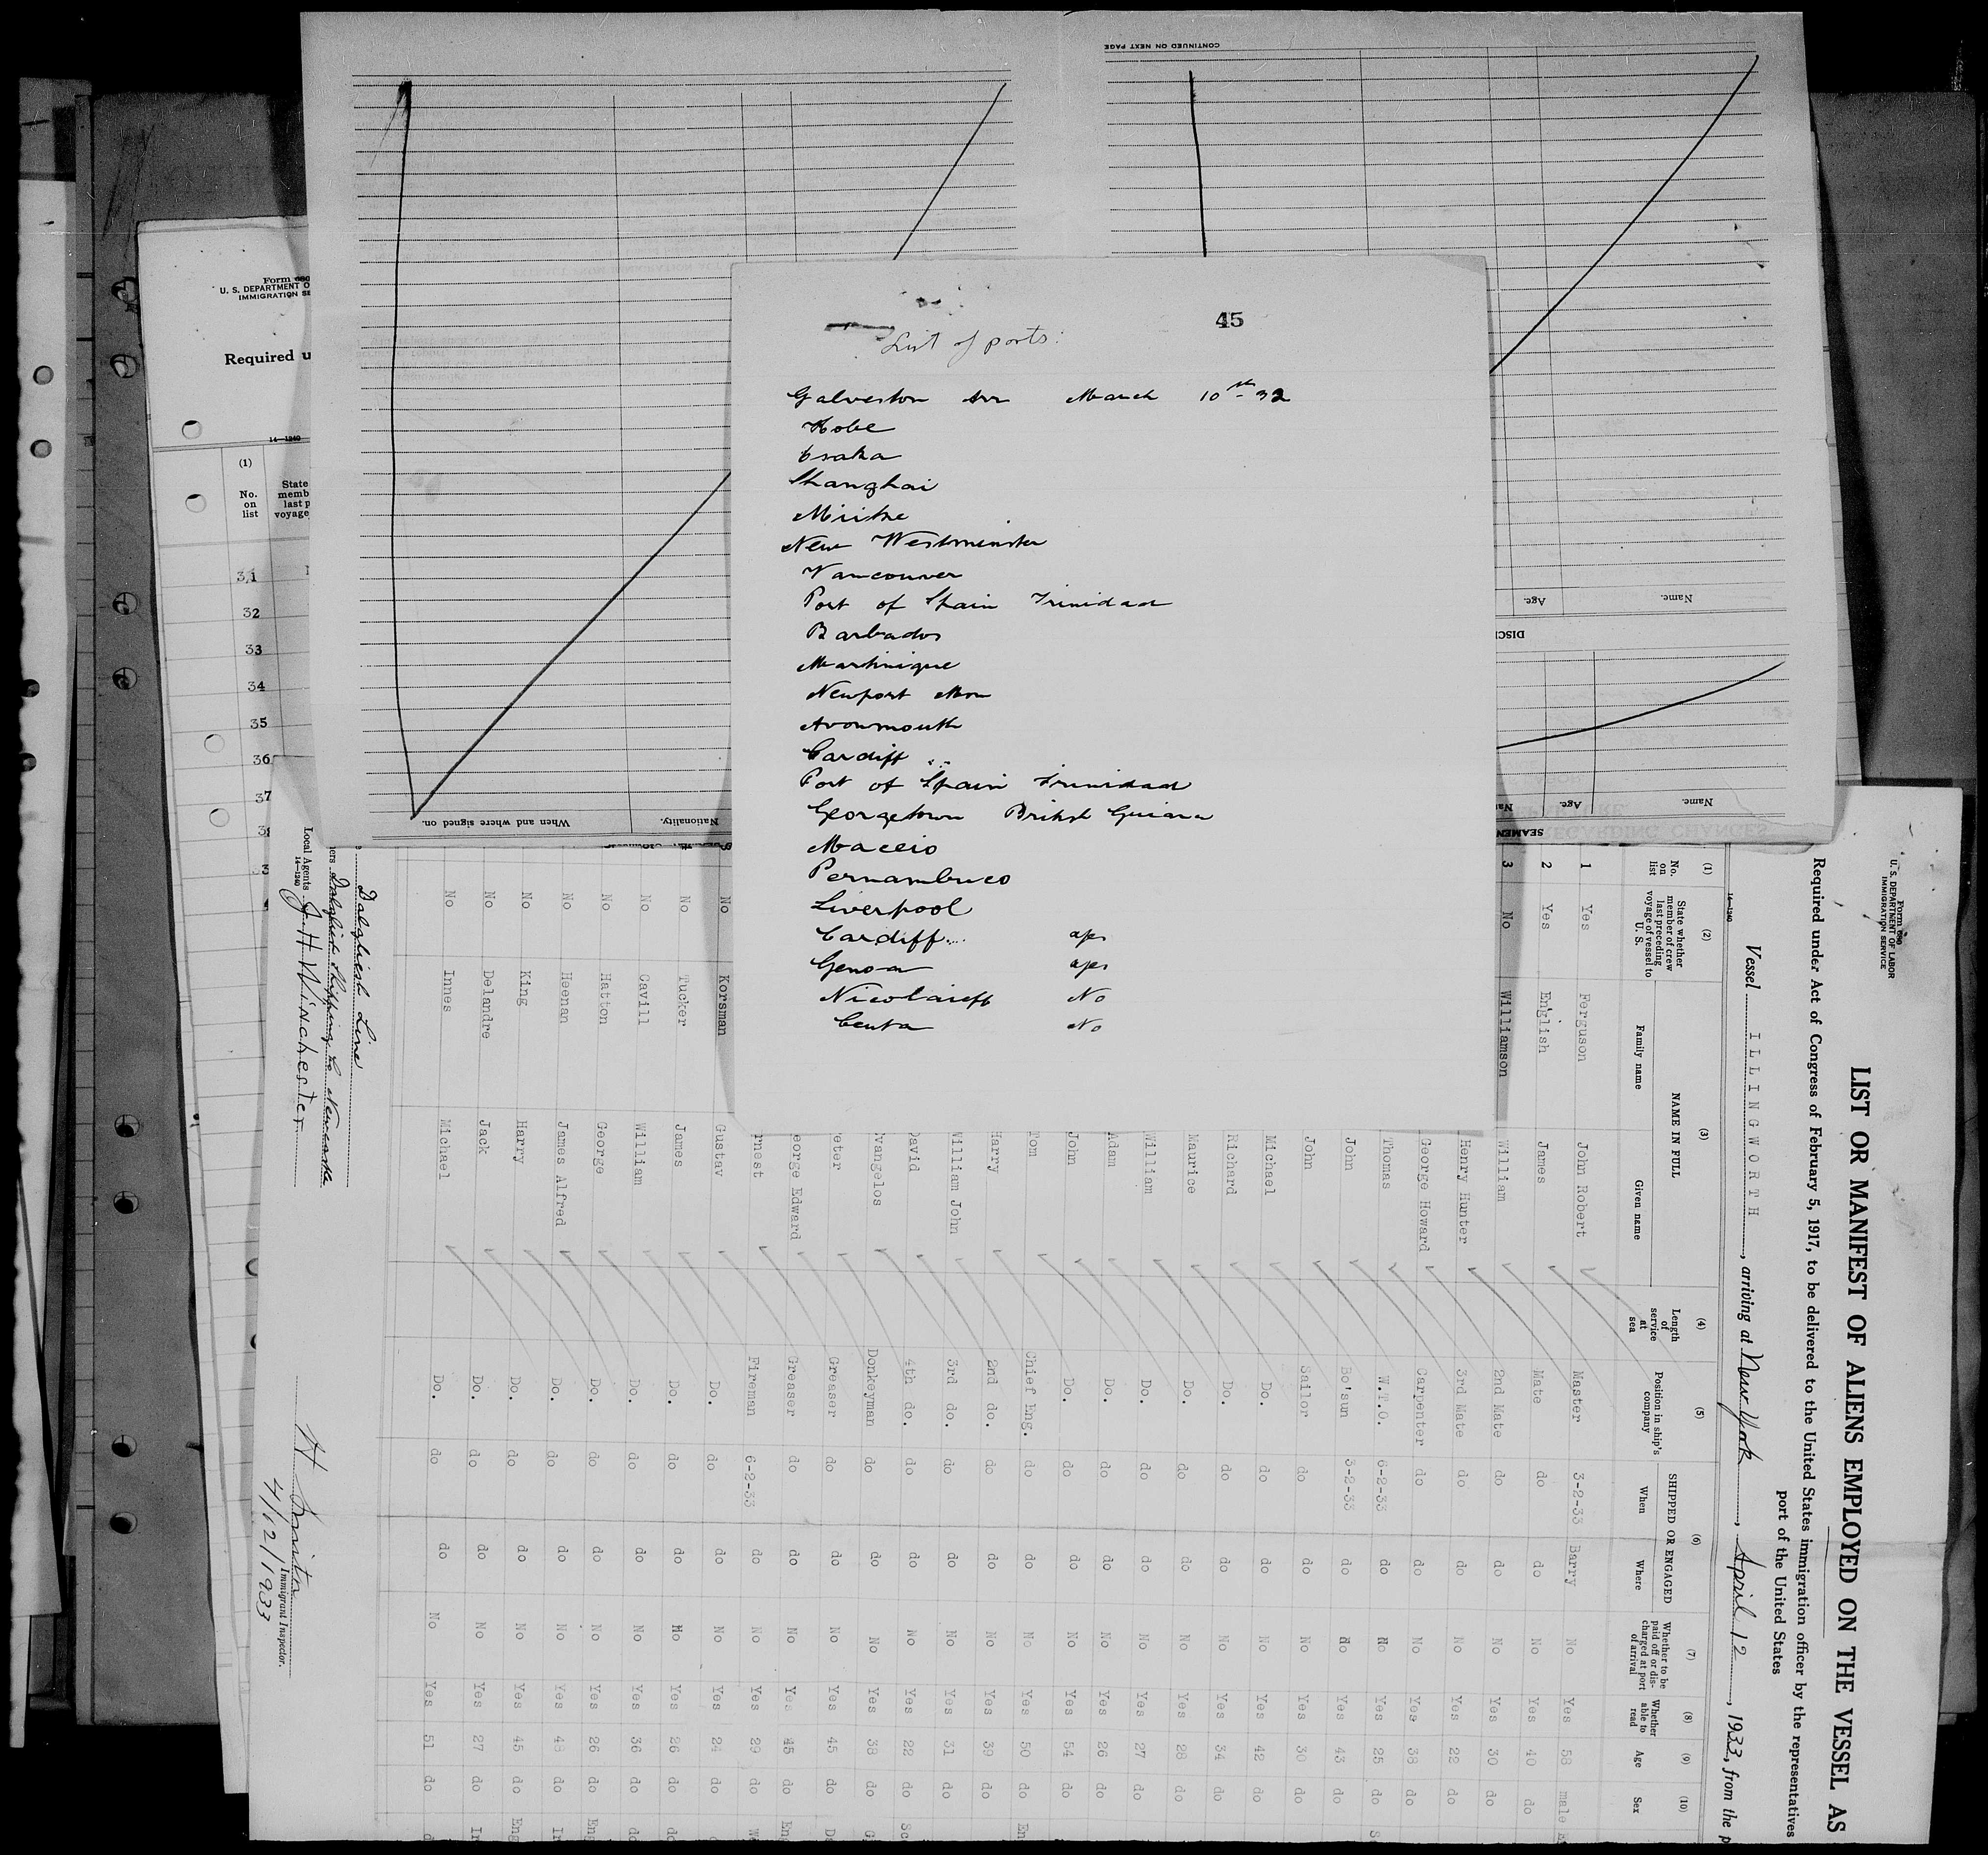 45
List of ports:
Galveston Arr March 10th 32
Kobe
Osaka
Shanghai
Miike
New Westminster
Vancouver
Port of Spain Trinidad
Barbados
Martinique
Newport Mon
Avonmouth
Cardiff
Port of Spain Trinidad
Georgetown British Guiana
Maceio
Pernambuco
Liverpool
Cardiff
Genoa
Nicolaieff No
Ceuta No
CONTINUED ON NEXT PAGE
Name. Age.
Name. Age.
When and where signed on. Nationality.
SEAMEN
U. S. DEPARTMENT O
IMMIGRATION SE
Required u
14—1240
(1)
No. on list
State
memb
last p
voyage
31
32
33
34
35
36
37
Form 680
U. S. DEPARTMENT OF LABOR
IMMIGRATION SERVICE
LIST OR MANIFEST OF ALIENS EMPLOYED ON THE VESSEL AS
Required under Act of Congress of February 5, 1917, to be delivered to the United States immigration officer by the representatives
port of the United States
Vessel ILLINGWORTH, arriving at New York, April 12, 1933, from the p
14—1240
(1) (2) (3) (4) (5) (6) (7) (8) (9) (10)
No. on list
State whether member of crew last preceding voyage of vessel to U. S.
NAME IN FULL
Family name Given name
Length of service at sea
Position in ship's company
SHIPPED OR ENGAGED
When Where
Whether to be paid off or discharged at port of arrival
Whether able to read
Age
Sex
1 Yes Ferguson John Robert Master 3-2-33 Barry No Yes 58 male
2 Yes English James Mate do do No Yes 40 do
3 No Williamson William 2nd Mate do do No Yes 30 do
Henry Hunter 3rd Mate do do No Yes 22 do
George Howard Carpenter do do No Yes 38 do
Thomas W.T.O. 6-2-33 do No Yes 25 do
John Bo'sun 3-2-33 do No Yes 43 do
John Sailor do do No Yes 30 do
Michael Do. do do No Yes 42 do
Richard Do. do do No Yes 34 do
Maurice Do. do do No Yes 28 do
William Do. do do No Yes 27 do
Adam Do. do do No Yes 26 do
John Do. do do No Yes 54 do
Tom Chief Eng. do do No Yes 50 do En
Harry 2nd do. do do No Yes 39 do
William John 3rd do. do do No Yes 31 do
David 4th. do. do do No Yes 22 do Sc
vangelos Donkeyman do do No Yes 38 do G
eter Greaser do do No Yes 45 do Da
eorge Edward Greaser do do No Yes 45 do Eng
rnest Fireman 6-2-33 do No Yes 29 do We
No Korsman Gustav Do. do do No Yes 24 do
No Tucker James Do. do do No Yes 26 do do
No Cavill William Do. do do No Yes 36 do do
No Hatton George Do. do do No Yes 26 do Eng
No Heenan James Alfred Do. do do No Yes 48 do Ir
No King Harry Do. do do No Yes 45 do Eng
No Delandre Jack Do. do do No Yes 27 do Ir
No Innes Michael Do. do do No Yes 51 do d
Dalgliesh Line
ners Dalgliesh Shipping Co Newcastle
Local Agents J H Winchester
14—1240
Immigrant Inspector.
4/12/1933